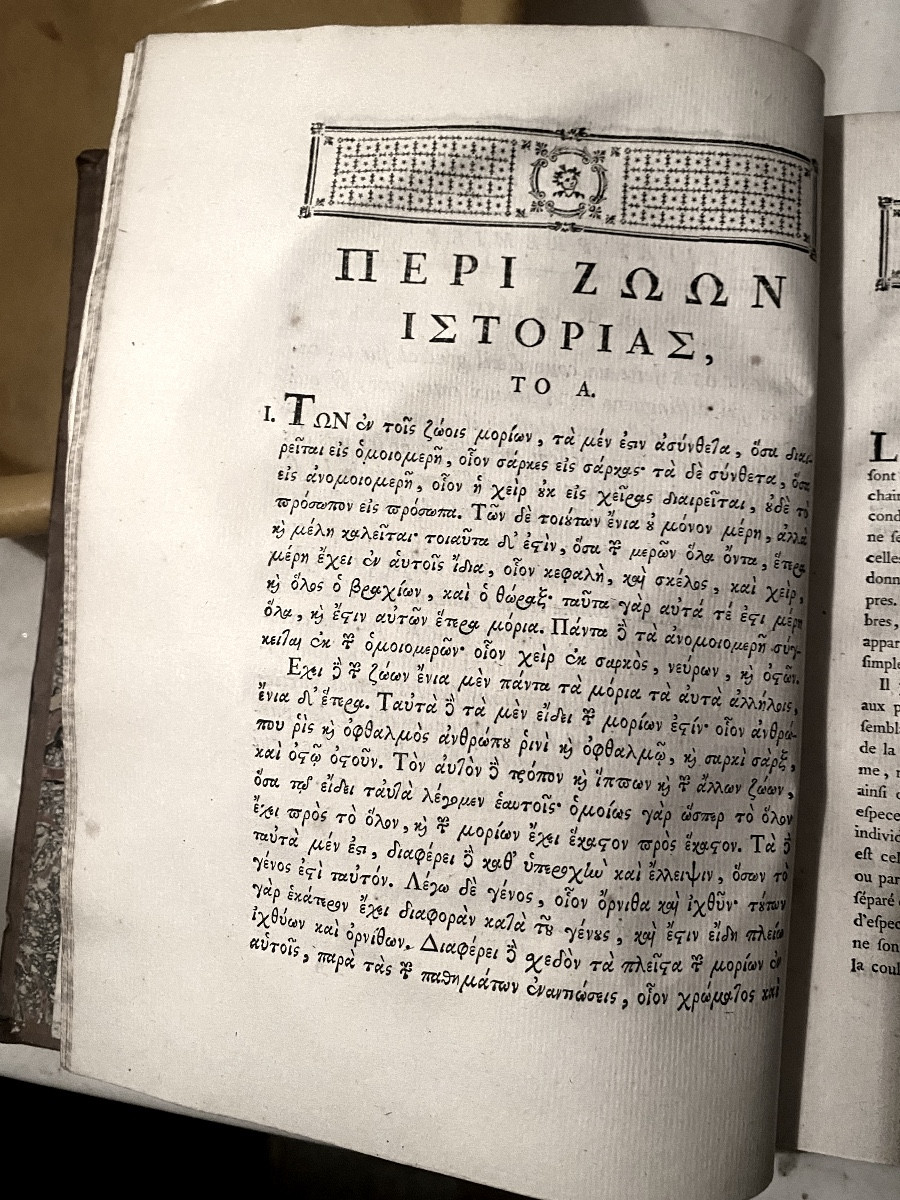 ΠΕΡΙ ΖΩΩΝ
ΙΣΤΟΡΙΑΣ,
ΤΟ Α.
I. ΤΩΝ ἐν τοῖς ζώοις μορίων, τὰ μέν ἐστιν ἀσύνθετα, ὅσα διαι-
ρεῖται εἰς ὁμοιομερῆ, οἷον σάρκες εἰς σάρκας· τὰ δὲ σύνθετα, ὅσα
εἰς ἀνομοιομερῆ, οἷον ἡ χεὶρ οὐκ εἰς χεῖρας διαιρεῖται, οὐδὲ τὸ
πρόσωπον εἰς πρόσωπα. Τῶν δὲ τοιούτων ἔνια οὐ μόνον μέρη, ἀλλὰ
καὶ μέλη καλεῖται· τοιαῦτα δ' ἐστὶν, ὅσα τῶν μερῶν ὅλα ὄντα, ἕτερα
μέρη ἔχει ἐν αὑτοῖς ἴδια, οἷον κεφαλὴ, καὶ σκέλος, καὶ χεὶρ,
καὶ ὅλος ὁ βραχίων, καὶ ὁ θώραξ· ταῦτα γὰρ αὐτά τέ ἐστι μέρη
ὅλα, καὶ ἔστιν αὐτῶν ἕτερα μόρια. Πάντα δὲ τὰ ἀνομοιομερῆ σύγ-
κειται ἐκ τῶν ὁμοιομερῶν· οἷον χεὶρ ἐκ σαρκὸς, νεύρων, καὶ ὀστῶν.
Εχει δὲ τῶν ζώων ἔνια μὲν πάντα τὰ μόρια τὰ αὐτὰ ἀλλήλοις,
ἔνια δ' ἕτερα. Ταὐτὰ δὲ τὰ μὲν εἴδει τῶν μορίων ἐστίν· οἷον ἀνθρώ-
που ῥὶς καὶ ὀφθαλμὸς ἀνθρώπου ῥινὶ καὶ ὀφθαλμῷ, καὶ σαρκὶ σὰρξ,
καὶ ὀστῷ ὀστοῦν. Τὸν αὐτὸν δὲ τρόπον καὶ ἵππων καὶ τῶν ἄλλων ζώων,
ὅσα τῷ εἴδει ταὐτὰ λέγομεν ἑαυτοῖς· ὁμοίως γὰρ ὥσπερ τὸ ὅλον
ἔχει πρὸς τὸ ὅλον, καὶ τῶν μορίων ἔχει ἕκαστον πρὸς ἕκαστον. Τὰ δὲ
ταὐτὰ μέν ἐστι, διαφέρει δὲ καθ' ὑπεροχὴν καὶ ἔλλειψιν, ὅσων τὸ
γένος ἐστὶ ταὐτόν. Λέγω δὲ γένος, οἷον ὄρνιθα καὶ ἰχθῦν· τούτων
γὰρ ἑκάτερον ἔχει διαφορὰν κατὰ τὸ γένους, καὶ ἔστιν εἴδη πλείω
ἰχθύων καὶ ὀρνίθων. Διαφέρει δὲ σχεδὸν τὰ πλεῖστα τῶν μορίων ἐν
αὐτοῖς, παρὰ τὰς τῶν παθημάτων ἐναντιώσεις, οἷον χρώματος καὶ
L
sont
chair
cond
ne se
celles
donn
pres.
bres,
appar
simple
Il
aux p
sembl
de la
me, n
ainsi
espece
individ
est cel
ou par
séparé
d'espec
ne son
la coul